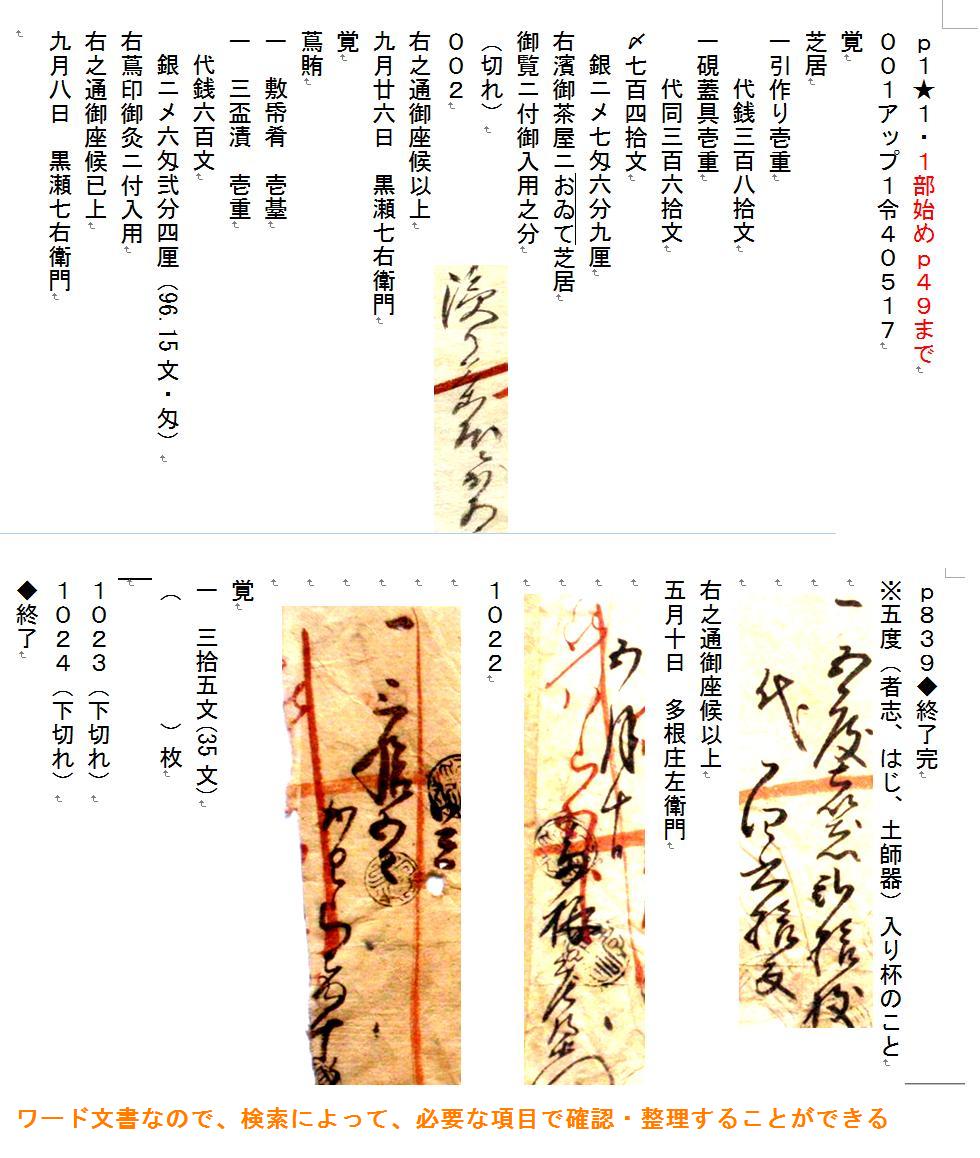 p1★1・1部始めp49まで
001アップ1令40517
覚
芝居
一引作り壱重
代銭三百八拾文
一硯蓋具壱重
代同三百六拾文
〆七百四拾文
銀ニ〆七匁六分九厘
右濱御茶屋ニおゐて芝居
御覧ニ付御入用之分
(切れ)
002
右之通御座候以上
九月廿六日 黒瀬七右衛門
覚
蔦賄
一 敷帋肴 壱臺
一 三盃漬 壱重
代銭六百文
銀ニ〆六匁弐分四厘(96.15文・匁)
右蔦印御灸ニ付入用
右之通御座候已上
九月八日 黒瀬七右衛門
p839◆終了完
※五度(者志、はじ、土師器)入り杯のこと
一 五度
代
右之通御座候以上
五月十日 多根庄左衛門
五月十日
多根
1022
一 三拾五文
覚
一 三拾五文(35文)
( )枚
1023(下切れ)
1024(下切れ)
◆終了
ワード文書なので、検索によって、必要な項目で確認・整理することができる